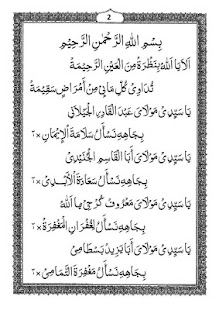 2
بِسْمِ اللهِ الرَّحْمٰنِ الرَّحِيْمِ
اَلَا يَا اَللهُ بِنَظْرَةٍ مِنَ الْعَيْنِ الرَّحِيْمَةِ
تُدَاوِيْ كُلَّ مَابِيْ مِنْ أَمْرَاضٍ سَقِيْمَةٍ
يَاسَيِّدِيْ مَوْلَايَ عَبْدَ الْقَادِرِ الْجَيْلَانِيْ
بِجَاهِهِ نَسْأَلُ سَلَامَةَ الْإِيْمَانِ ×٢
يَاسَيِّدِيْ مَوْلَايَ أَبَا الْقَاسِمِ الْجُنَيْدِيْ
بِجَاهِهِ نَسْأَلُ سَعَادَةَ الْأَبَدِيْ ×٢
يَاسَيِّدِيْ مَوْلَايَ مَعْرُوْفْ كَرْخِيْ هَا اَللهُ
بِجَاهِهِ نَسْأَلُ الْغُفْرَانِ الْمَغْفِرَةَ ×٢
يَاسَيِّدِيْ مَوْلَايَ أَبَا يَزِيْدْ بَسْطَامِيْ
بِجَاهِهِ نَسْأَلُ مَغْفِرَةَ التَّمَامِيْ ×٢